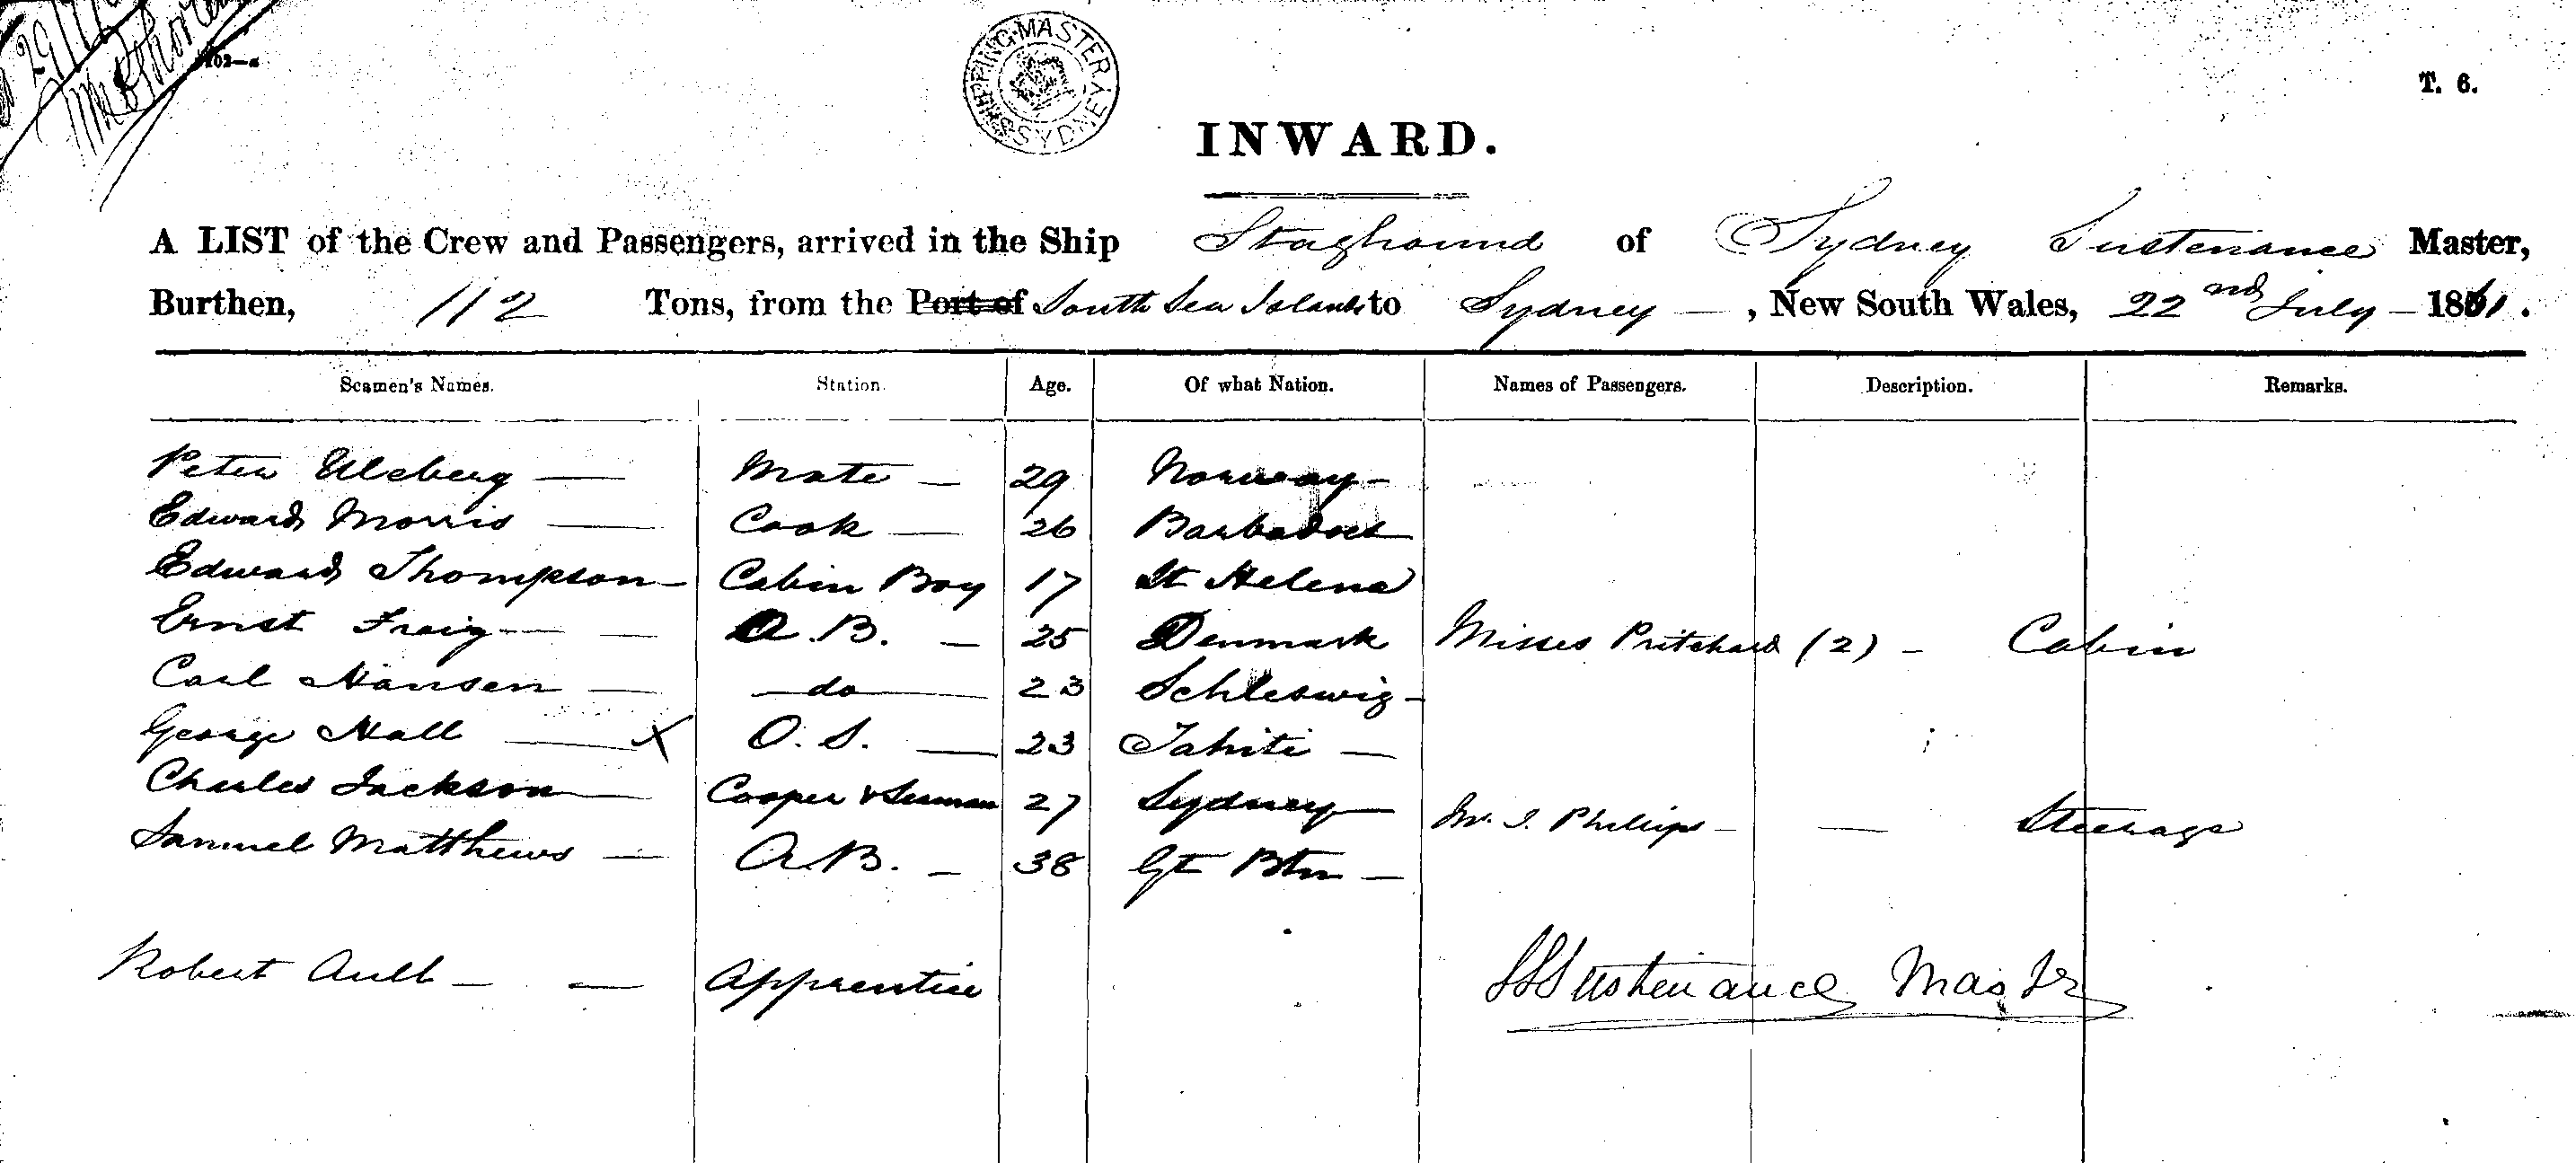 SHIPPING MASTER SYDNEY
T. 6.
INWARD.
A LIST of the Crew and Passengers, arrived in the Ship Staghound of Sydney Sustenance Master,
Burthen, 112 Tons, from the Port of South Sea Islands to Sydney — , New South Wales, 22nd July - 1861.
Seamen's Names. Station. Age. Of what Nation. Names of Passengers. Description. Remarks.
Peter Uleberg — Mate — 29 Norway —
Edward Morris — Cook — 26 Barbadoes
Edward Thompson — Cabin Boy 17 St Helena
Ernst — A.B. — 25 Denmark Misses Pritchard (2) - Cabin
Carl Hansen — do — 23 Schleswig -
George Hall — X O.S. — 23 Tahiti —
Charles Jackson — Cooper & Seaman 27 Sydney — Mr. J. Phillips - — Steerage
Samuel Matthews — A.B. — 38 Gt Btn —
Robert Ault — — Apprentice
Sustenance Master